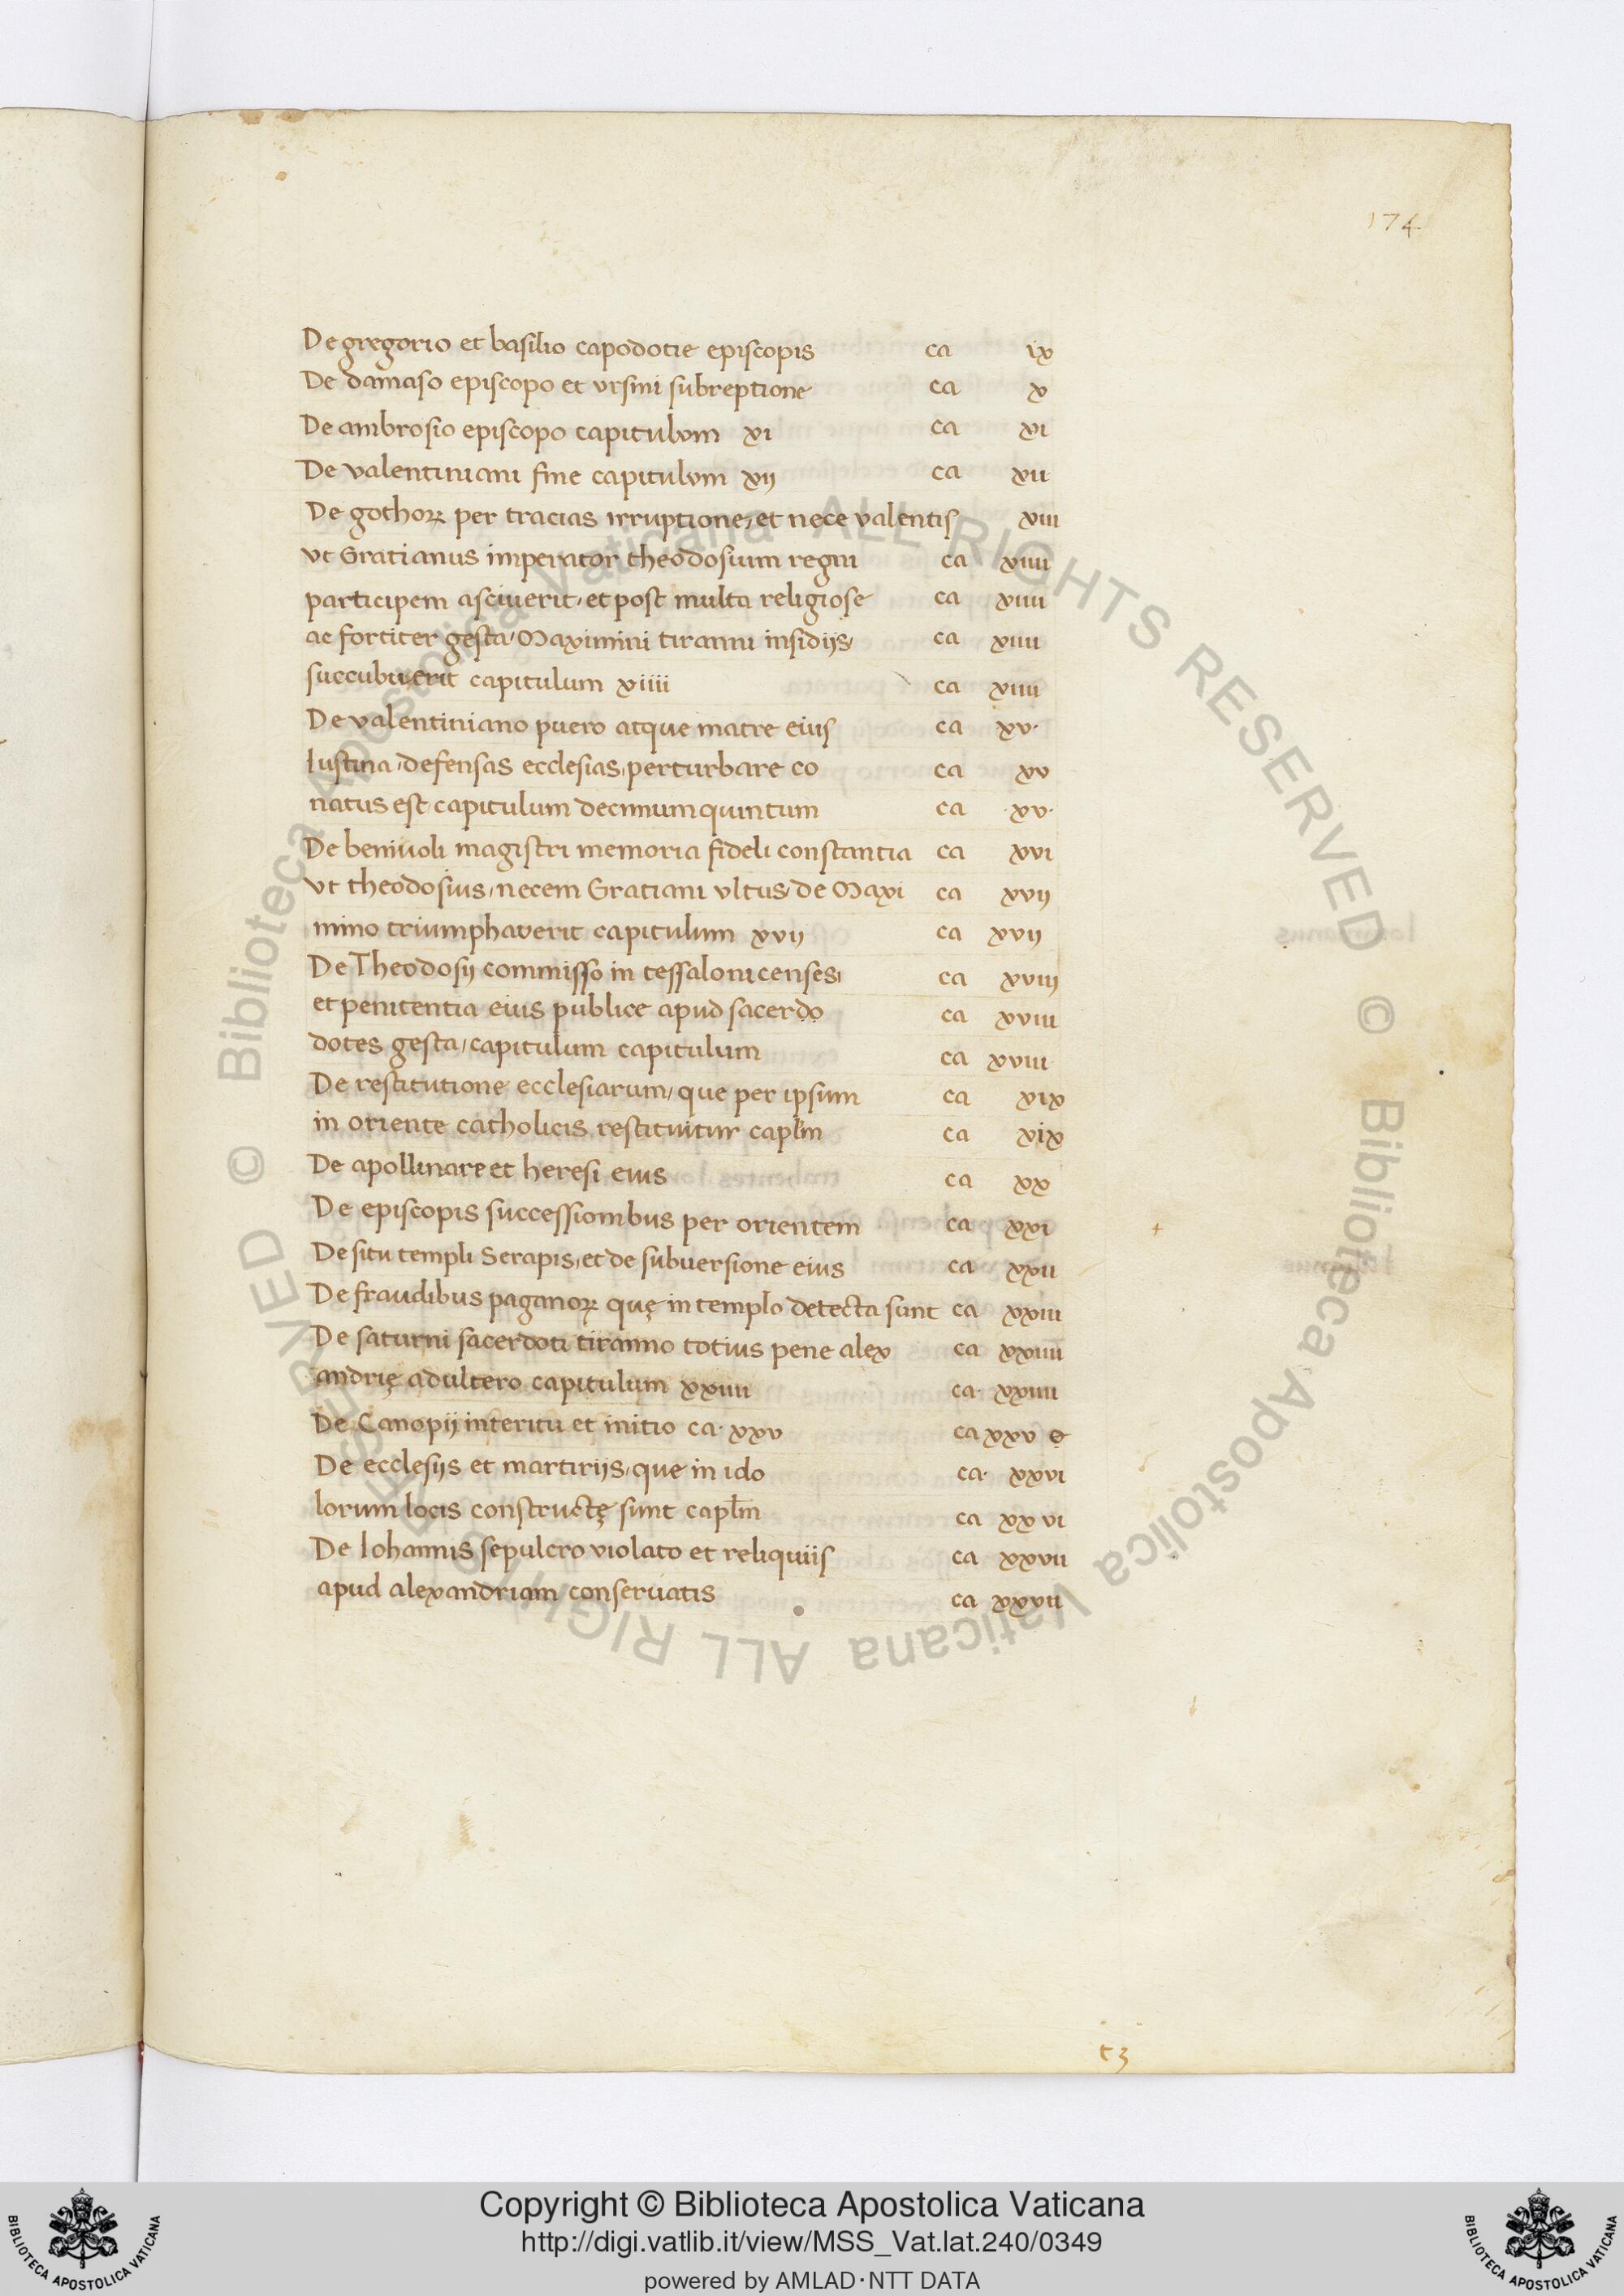 174
De gregorio et basilio capodocie episcopis ca ix
De damaso episcopo et vrsini subreptione ca x
De ambrosio episcopo capitulom xi ca xi
De valentiniani fine capitulom xij ca xii
De gothoꝝ per tracias irruptione, et nece valentis xiii
vt Gratianus imperator theodosium regni ca xiiii
participem asciuerit, et post multa religiose ca xiiii
ac fortiter gesta, Maximini tiranni insidijs, ca xiiii
succubuerit capitulum xiiii ca xiiii
De valentiniano puero atque matre eius ca xv.
Iustina, defensas ecclesias, perturbare co ca xv
natus est capitulum decimumquintum ca .xv.
De beniuoli magistri memoria fideli constantia ca xvi
vt theodosius, necem Gratiani vltus, de Maxi ca xvij
mino triumphaverit capitulum xvij ca xvij
De Theodosij commisso in tessalonicenses, ca xviij
et penitentia eius publice apud sacerdo ca xviii
dotes gesta, capitulum capitulum ca xviii
De restitutione ecclesiarum, que per ipsum ca xix
in oriente catholicis restituitur capłm ca xix
De apollinare et heresi eius ca xx
De episcopis successionibus per orientem ca xxi
De situ templi Serapis, et de subuersione eius ca xxii
De fraudibus paganoꝝ quę in templo detecta sunt ca xxiii
De saturni sacerdoti tiranno totius pene alex ca xxiiii
andrię adultero capitulum xxiiii ca. xxiiii
De Canopij interitu et initio ca. xxv ca xxv
De ecclesijs et martirijs, que in ido ca. xxvi
lorum locis constructę sunt capłm ca xxvi
De Iohannis sepulcro violato et reliquiis ca xxvii
apud alexandriam conseruatis ca xxvii
t3
© Biblioteca Apostolica Vaticana ALL RIGHTS RESERVED © Biblioteca Apostolica Vaticana ALL RIGHTS RESERVED
Copyright © Biblioteca Apostolica Vaticana
http://digi.vatlib.it/view/MSS_Vat.lat.240/0349
powered by AMLAD·NTT DATA
BIBLIOTECA APOSTOLICA VATICANA
BIBLIOTECA APOSTOLICA VATICANA